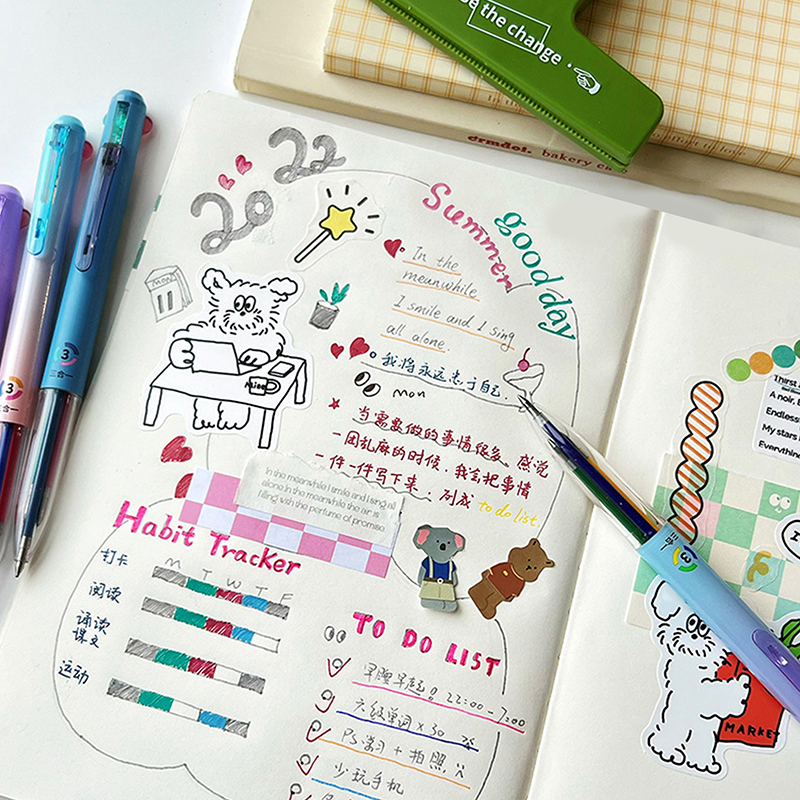 the change
ermdei. bakery
2022
Summer
good day
In the
meanwhile
I smile and I sing
all alone.
我将永远忠于自己.
mon
当需要做的事情很多、感觉
一团乱麻的时候，我会把事情
一件一件写下来：列成 to do list
In the meanwhile I smile and I sing all
alone In the meanwhile the air is
filling with the perfume of promise
Habit Tracker
M T W T F
打卡
阅读
诵读
课文
运动
TO DO LIST
早睡早起 22:00-7:00
六级单词 x 30
PS学习 + 拍照
少玩手机
3
三合一
3
三合一
3
Thirst
A noir, B
Endless
My stars
Everything
I
MARKE